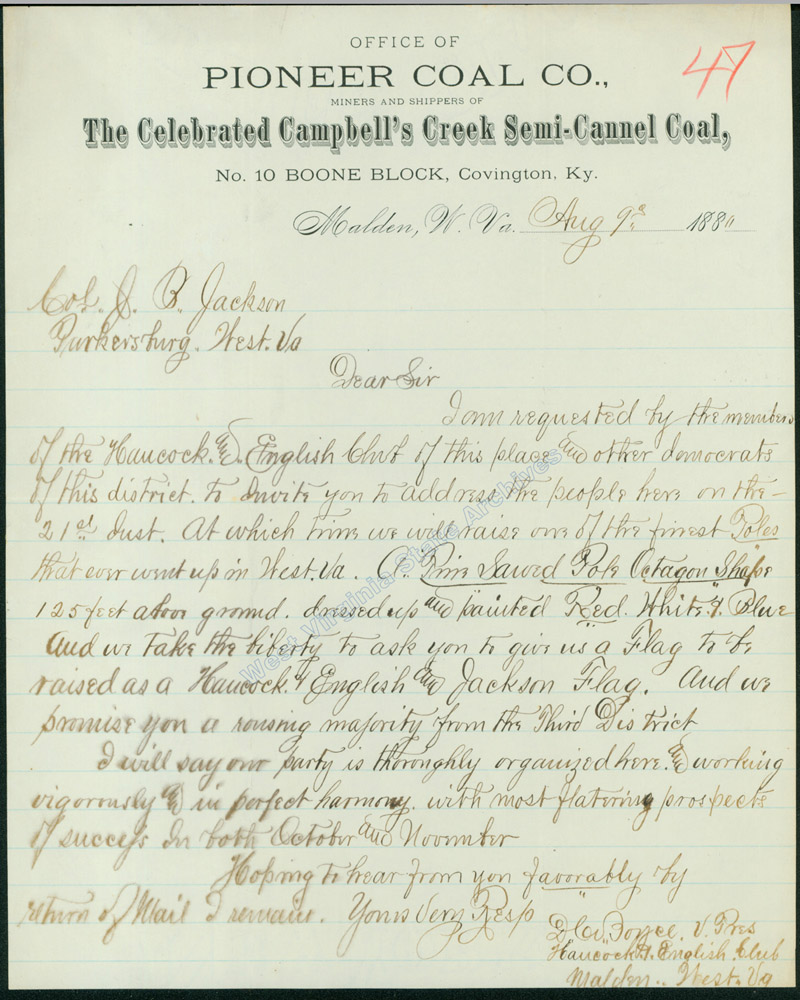 47
OFFICE OF
PIONEER COAL CO.,
MINERS AND SHIPPERS OF
The Celebrated Campbell's Creek Semi-Cannel Coal,
No. 10 BOONE BLOCK, Covington, Ky.
Malden, W. Va. Aug 9th 1880
Col. J. B. Jackson
Parkersburg. West. Va
Dear Sir
I am requested by the members
of the Hancock. and English Club of this place and other democrats
of this district. to invite you to address the people here on the
21st Inst. At which time we will raise one of the finest Poles
that ever went up in West. Va. A. Pine Sawed Pole Octagon Shape
125 feet above ground. dressed up and painted Red. White &. Blue
And we take the liberty to ask you to give us a Flag to be
raised as a Hancock. & English and Jackson Flag. And we
promise you a rousing majority from the Third District
I will say our party is thoroughly organized here. and working
vigorously and in perfect harmony. with most flatering prospects
of success in both October and November
Hoping to hear from you favorably by
return of Mail I remain. Yours Very Resp
V. Pres
Hancock &. English Club
Malden.. West. Va
West Virginia State Archives